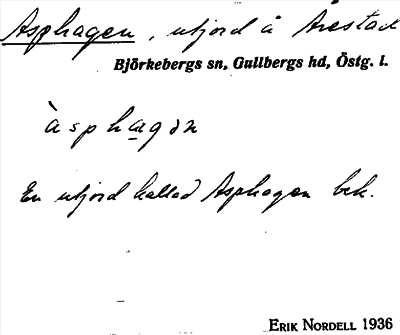 Asphagen, utjord å Årestad
Björkebergs sn, Gullbergs hd, Östg. l.
àsphagən
En utjord kallad Asphagen bek.
ERIK NORDELL 1936